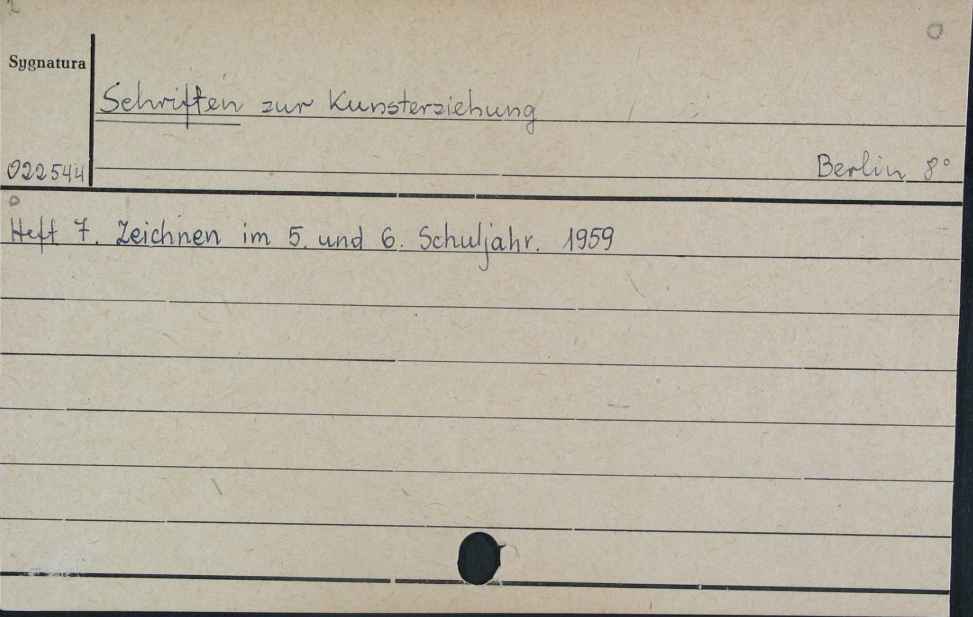 Sygnatura
Schriften zur Kunsterziehung
022544
Berlin 8°
Heft 7. Zeichnen im 5. und 6. Schuljahr. 1959